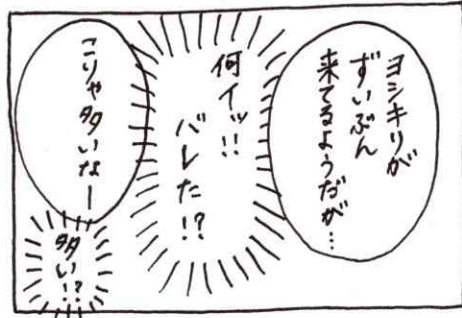 ヨシキリが
ずいぶん
来てるようだが…
何イッ!!
バレた!?
こりゃ多いなー
多い!?